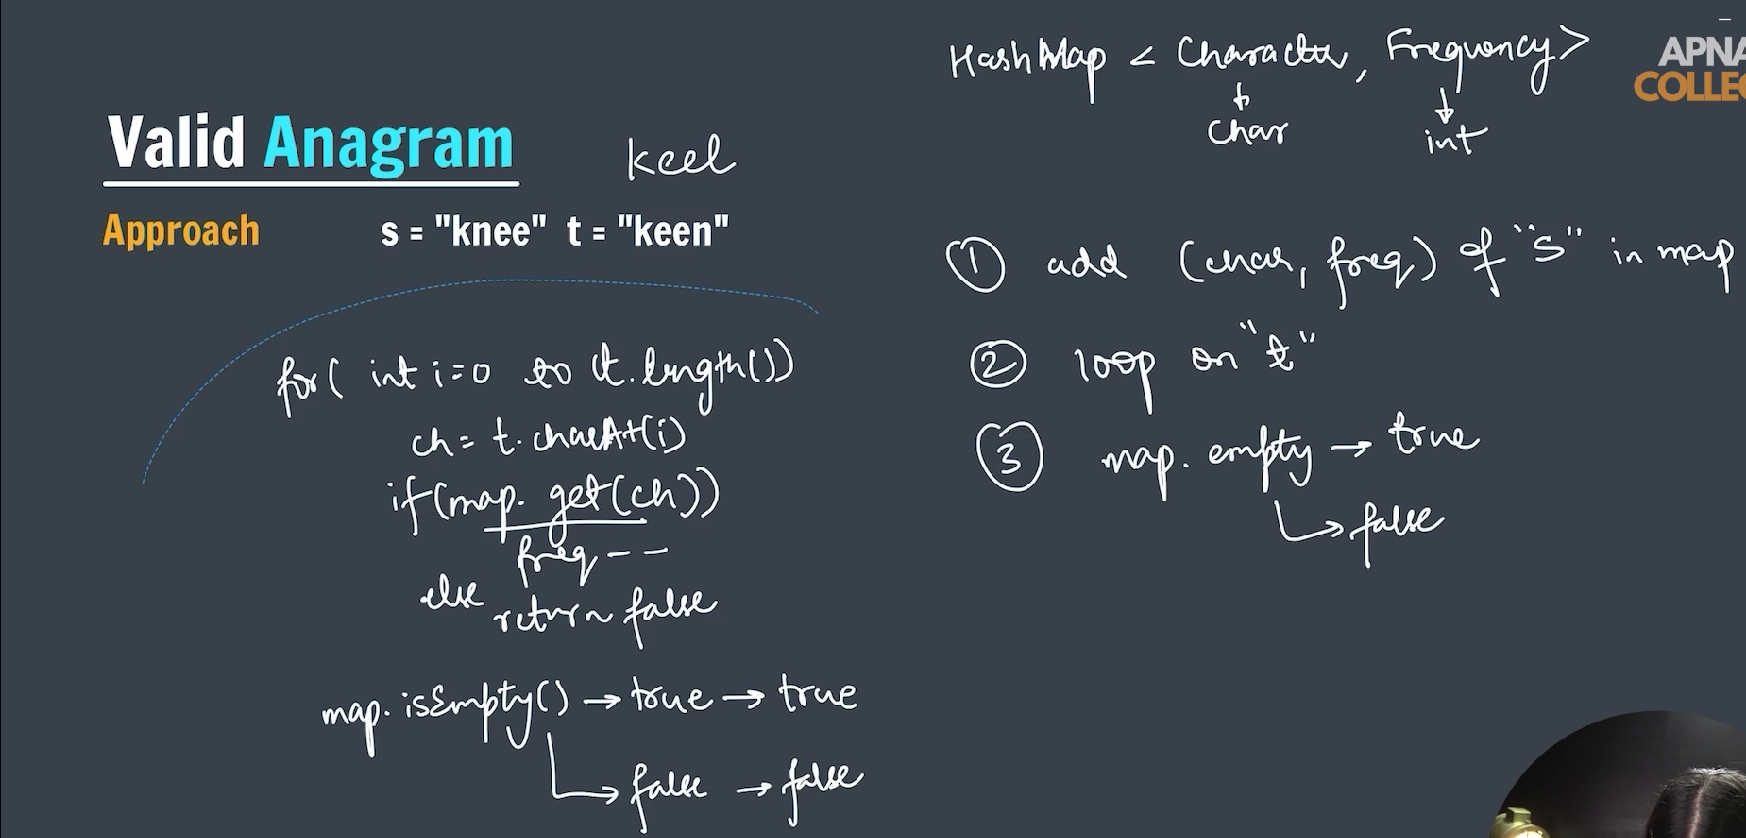 Valid Anagram
keel
Approach s = "knee" t = "keen"
for( int i=0 to t.length())
ch = t.charAt(i)
if(map. get(ch))
freq--
else
return false
map. isEmpty() → true → true
false → false
HashMap < Character, Frequency>
char
int
APNA
COLLEG
① add (char, freq) of "s" in map
② loop on "t"
③ map. empty → true
false